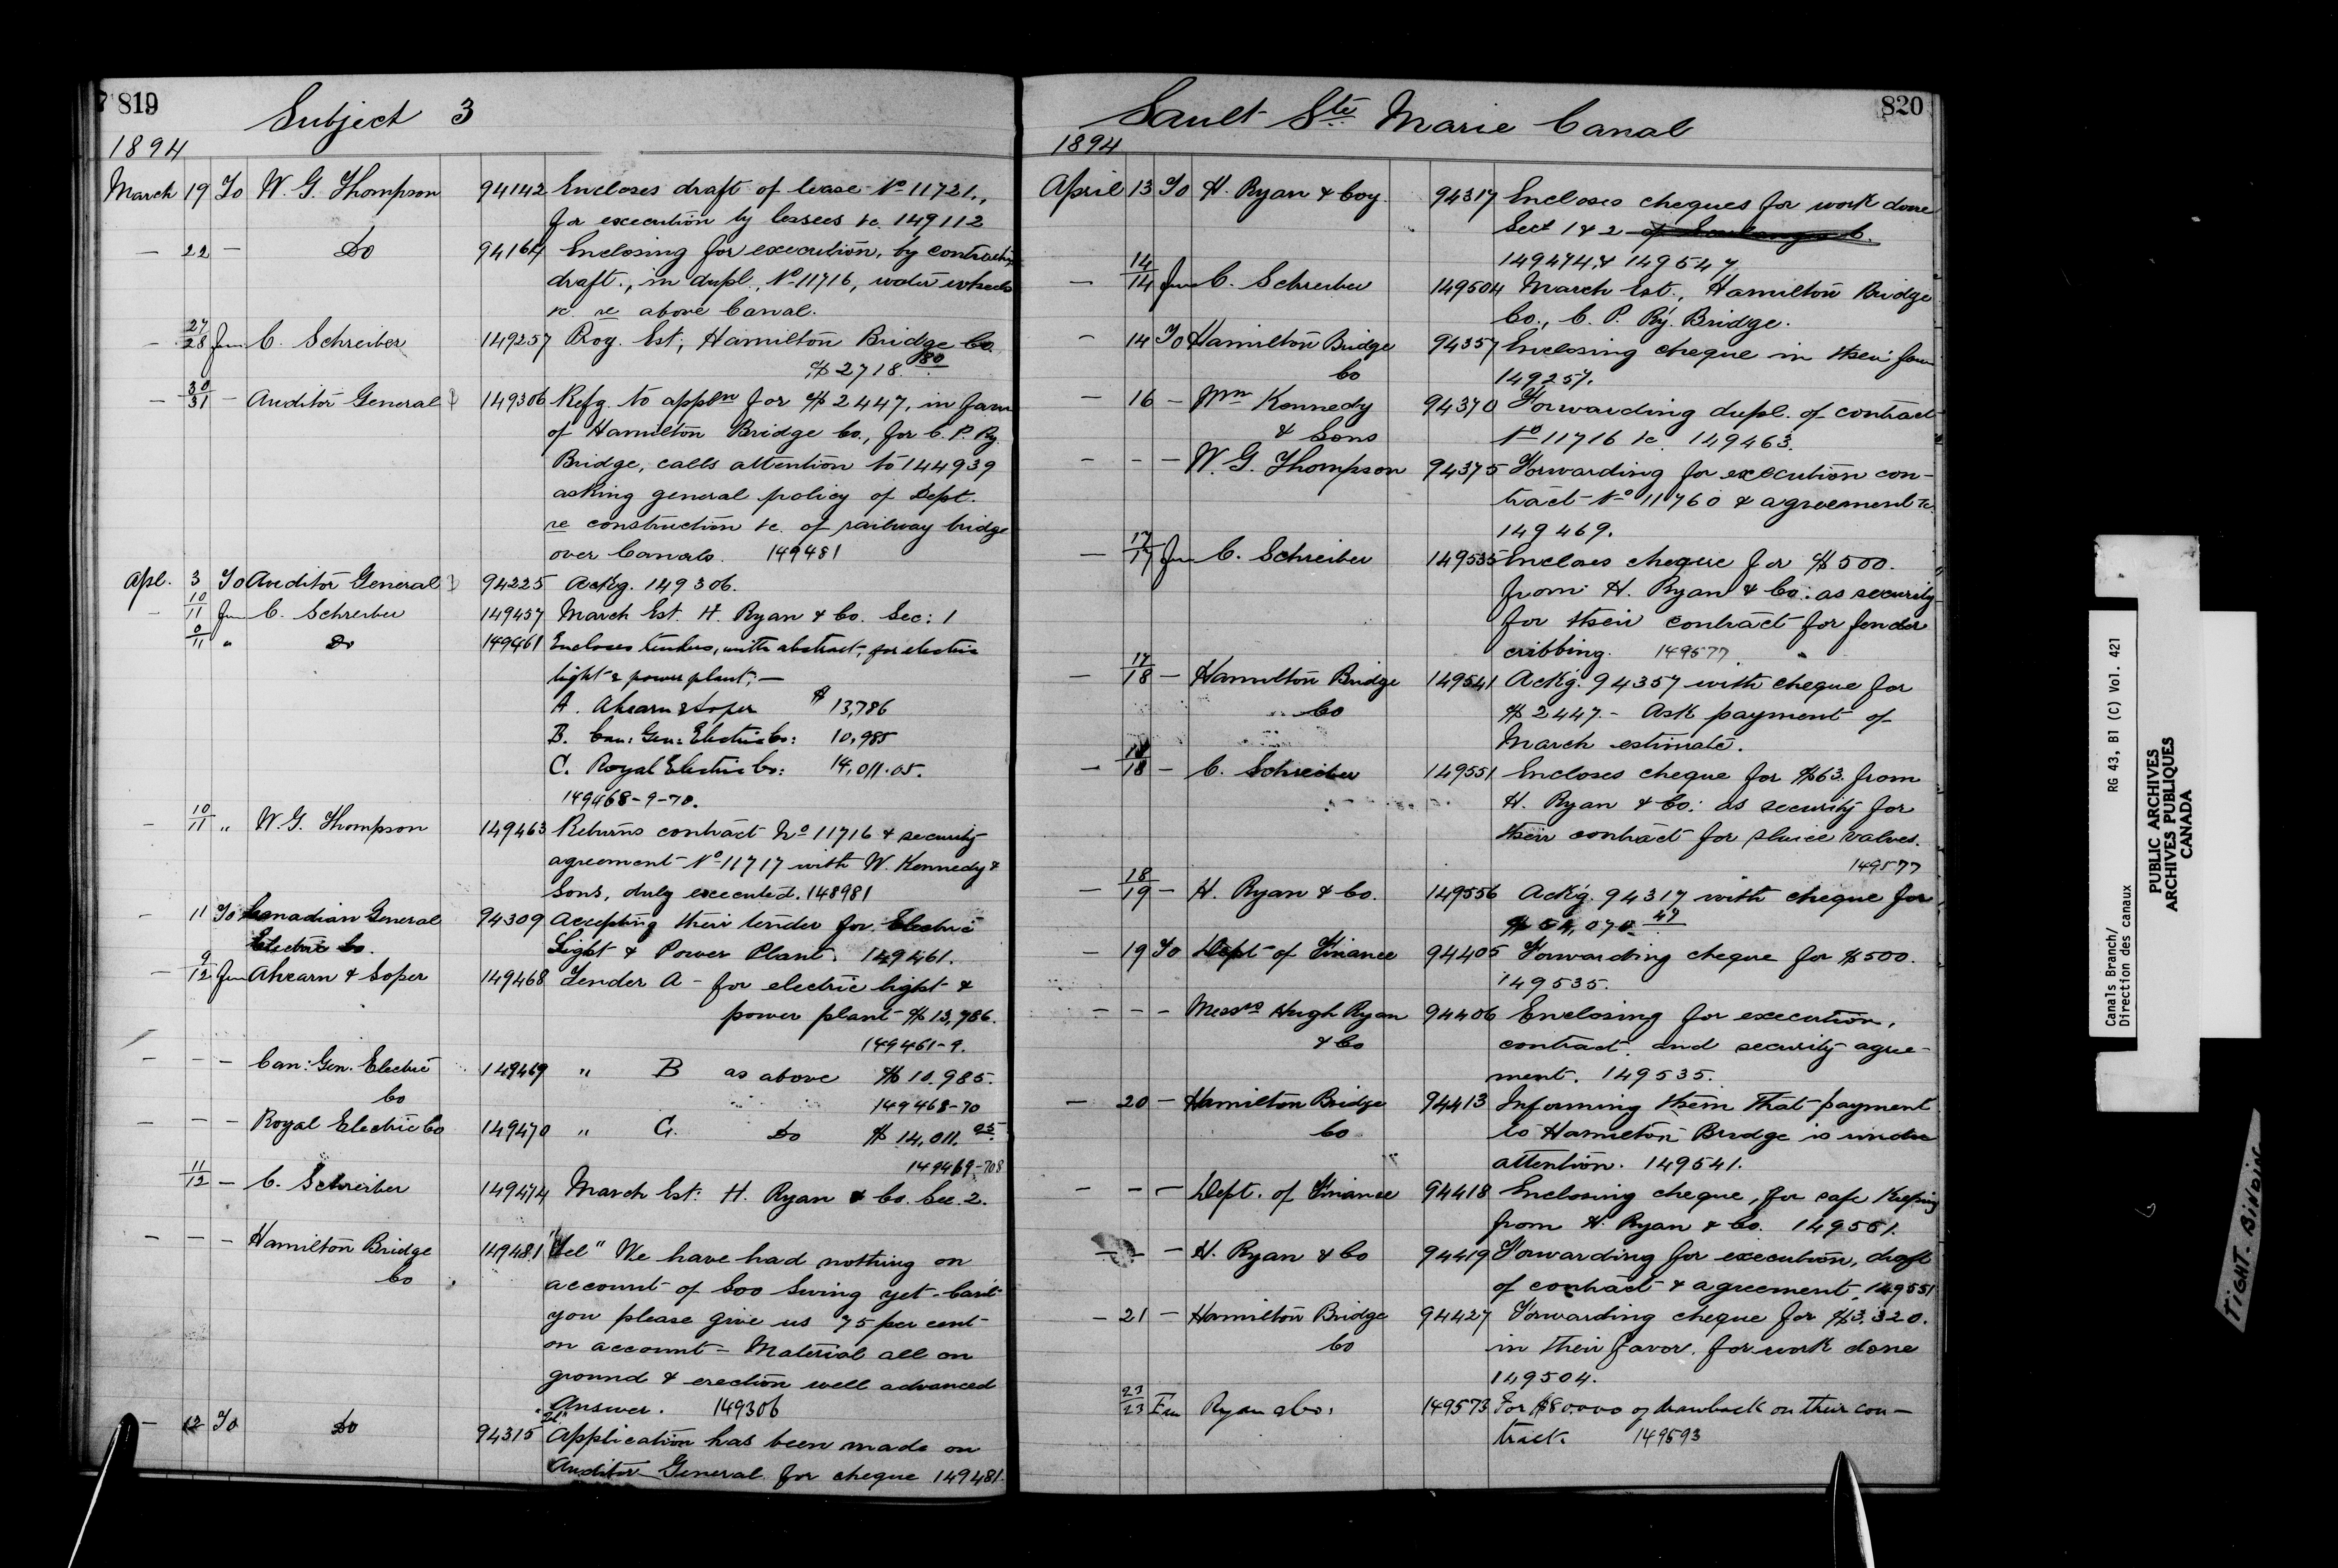 819
Subject 3
1894
March 19 To W. G. Thompson 94142 Encloses draft of lease No 11721.,
for execution by lessees &c. 149112
— 22 — Do 94164 Enclosing for execution, by contractors
draft., in dupl., No 11716, water wheels
&c. re above Canal.
— 27/28 fm C. Schreiber 149257 Prog. Est; Hamilton Bridge Co.
$2718.80
— 30/31 — Auditor General 149306 Refg. to appln for $2447, in favr
of Hamilton Bridge Co., for C. P. Ry.
Bridge, calls attention to 144939
asking general policy of Dept.
re construction &c. of railway bridge
over Canals. 149481
Apl. 3 To Auditor General 94225 Ackg. 149306.
— 10/11 fm C. Schreiber 149457 March Est. H. Ryan & Co. Sec: 1
11 " Do 149461 Encloses tenders, with abstract, for electric
light & power plant; —
A. Ahearn & Soper $13,786
B. Can: Gen: Electric Co: 10,985
C. Royal Electric Co: 14,011.05.
149468-9-70.
— 10/11 " W. G. Thompson 149463 Returns contract No 11716 & security
agreement No 11717 with W. Kennedy &
Sons, duly executed. 148981
— 11 To Canadian General 94309 Accepting their tender for Electric
Electric Co. Light & Power Plant. 149461.
— 9/12 fm Ahearn & Soper 149468 Tender A — for electric light &
power plant $13,786.
149461-9.
— — — Can: Gen. Electric 149469 " B as above $10.985.
Co 149468-70
— — — Royal Electric Co 149470 " C. Do $14,011.05
149469-70
11/12 — C. Schreiber 149474 March Est: H. Ryan & Co. Sec. 2.
— — — Hamilton Bridge 149481 "Tel" We have had nothing on
Co account of Soo Swing yet — Can't
you please give us 75 per cent
on account — Material all on
ground & erection well advanced
Answer. 149306
— 12 To Do 94315 "Tel" Application has been made on
Auditor General for cheque 149481.
820
Sault Ste Marie Canal
1894
April 13 To H. Ryan & Coy. 94317 Encloses cheques for work done
Sect 1 & 2 of Soulanges C.
149474, & 149547
— 14/14 fm C. Schreiber 149504 March Est., Hamilton Bridge
Co., C. P. Ry. Bridge.
— 14 To Hamilton Bridge 94357 Enclosing cheque in their favr
Co 149257.
— 16 — Wm Kennedy 94370 Forwarding dupl. of contract
& Sons No 11716 &c. 149463.
— — — W. G. Thompson 94375 Forwarding for execution con-
tract No 11760 & agreement &c.
149469.
— 17/17 fm C. Schreiber 149535 Encloses cheque for $500.
from H. Ryan & Co: as security
for their contract for fender
cribbing. 149577
— 17/18 — Hamilton Bridge 149541 Ackg. 94357 with cheque for
Co $2447.— Ask payment of
March estimate.
— 18/18 — C. Schreiber 149551 Encloses cheque for $63. from
H. Ryan & Co: as security for
their contract for sluice valves.
149577
— 18/19 — H. Ryan & Co. 149556 Ackg. 94317 with cheque for
$ 070.47
— 19 To Dept of Finance 94405 Forwarding cheque for $500.
149535.
— — — Messrs Hugh Ryan 94406 Enclosing for execution,
& Co contract and security agree-
ment. 149535.
— 20 — Hamilton Bridge 94413 Informing them that payment
Co to Hamilton Bridge is under
attention. 149541.
— — — Dept. of Finance 94418 Enclosing cheque, for safe keeping
from H. Ryan & Co. 149551.
— — — H. Ryan & Co 94419 Forwarding for execution, draft
of contract & agreement, 149551
— 21 — Hamilton Bridge 94427 Forwarding cheque for $3,320.
Co in their favor. for work done
149504.
23/23 Fm Ryan & Co: 149573 For $80000 of drawback on their con-
tract. 149593
Canals Branch/
Direction des canaux
RG 43, B1 (C) Vol. 421
PUBLIC ARCHIVES
ARCHIVES PUBLIQUES
CANADA
TIGHT BINDING